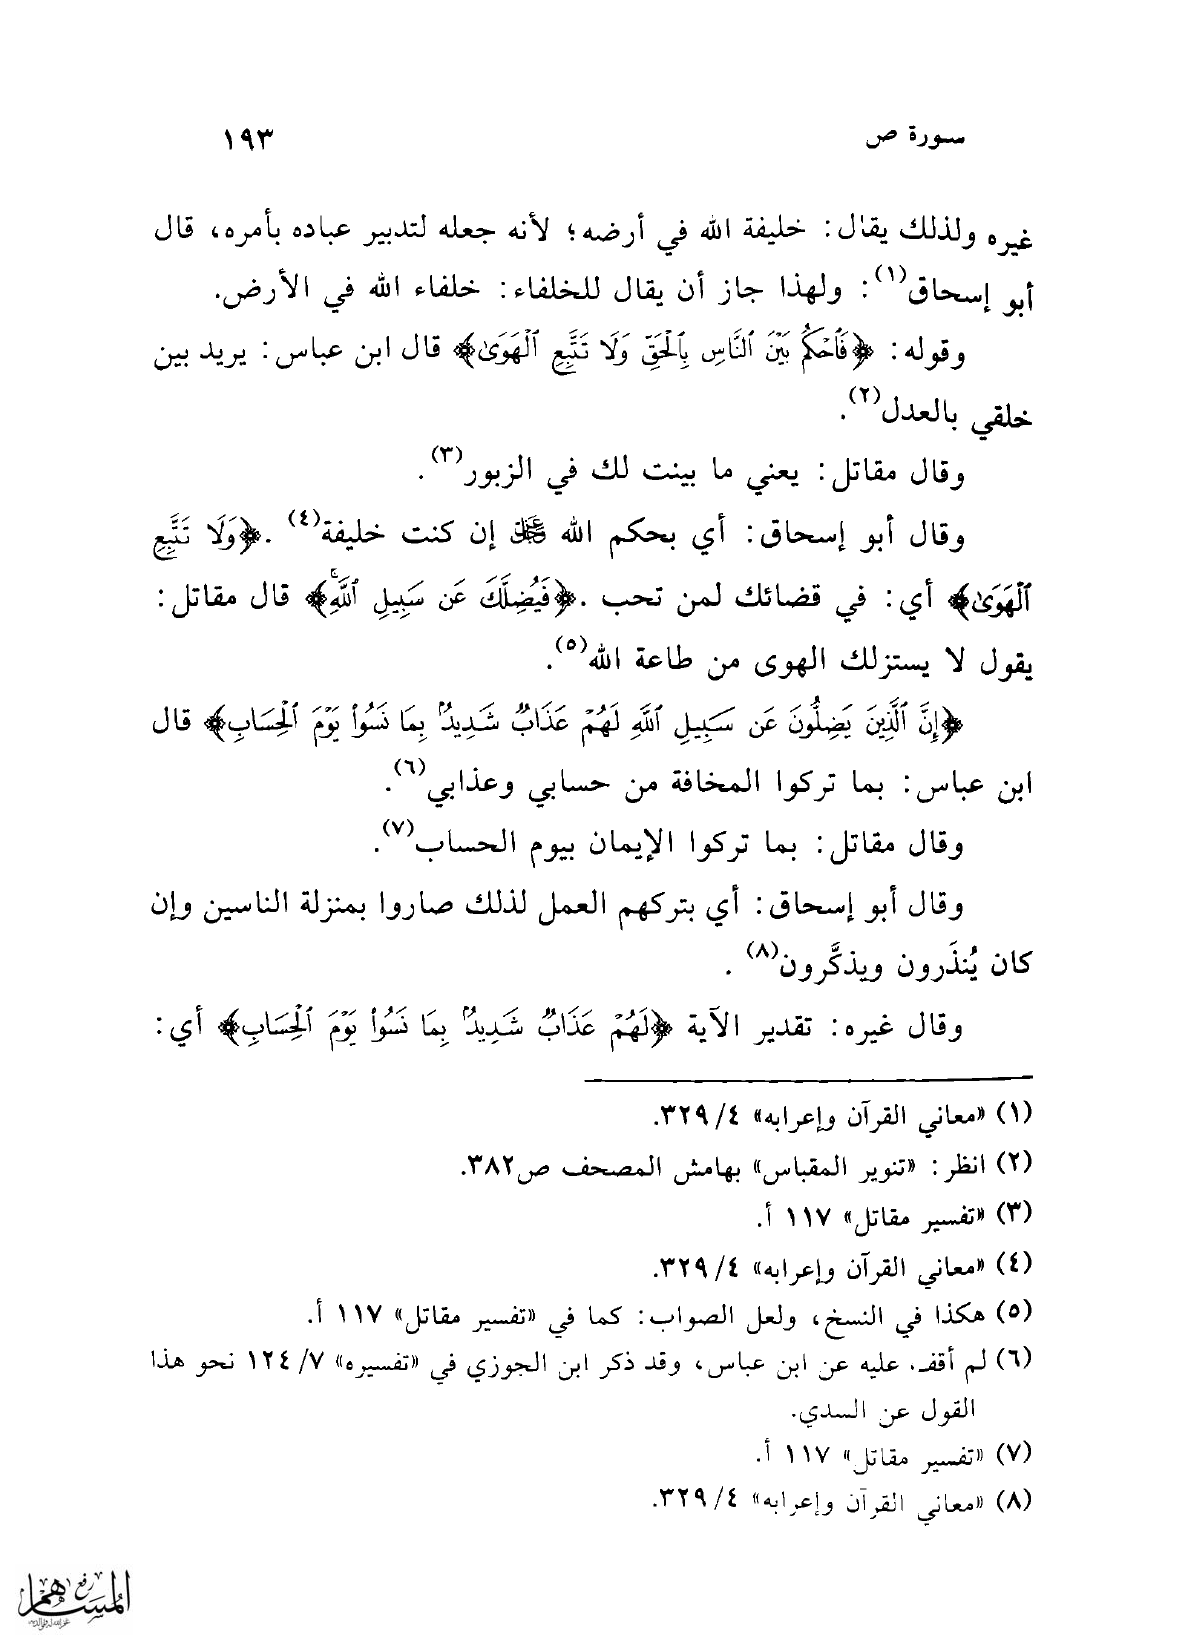 سورة ص
١٩٣
غيره ولذلك يقال: خليفة الله في أرضه؛ لأنه جعله لتدبير عباده بأمره، قال
أبو إسحاق(١): ولهذا جاز أن يقال للخلفاء: خلفاء الله في الأرض.
وقوله: ﴿فَٱحْكُم بَيْنَ ٱلنَّاسِ بِٱلْحَقِّ وَلَا تَتَّبِعِ ٱلْهَوَىٰ﴾ قال ابن عباس: يريد بين
خلقي بالعدل(٢).
وقال مقاتل: يعني ما بينت لك في الزبور(٣).
وقال أبو إسحاق: أي بحكم الله عز وجل إن كنت خليفة(٤) .﴿وَلَا تَتَّبِعِ
ٱلْهَوَىٰ﴾ أي: في قضائك لمن تحب .﴿فَيُضِلَّكَ عَن سَبِيلِ ٱللَّهِ ۚ﴾ قال مقاتل:
يقول لا يستزلك الهوى من طاعة الله(٥).
﴿إِنَّ ٱلَّذِينَ يَضِلُّونَ عَن سَبِيلِ ٱللَّهِ لَهُمْ عَذَابٌ شَدِيدٌۢ بِمَا نَسُوا۟ يَوْمَ ٱلْحِسَابِ﴾ قال
ابن عباس: بما تركوا المخافة من حسابي وعذابي(٦).
وقال مقاتل: بما تركوا الإيمان بيوم الحساب(٧).
وقال أبو إسحاق: أي بتركهم العمل لذلك صاروا بمنزلة الناسين وإن
كان يُنذَرون ويذكَّرون(٨) .
وقال غيره: تقدير الآية ﴿لَهُمْ عَذَابٌ شَدِيدٌۢ بِمَا نَسُوا۟ يَوْمَ ٱلْحِسَابِ﴾ أي:
(١) «معاني القرآن وإعرابه» ٤/ ٣٢٩.
(٢) انظر: «تنوير المقباس» بهامش المصحف ص٣٨٢.
(٣) «تفسير مقاتل» ١١٧ أ.
(٤) «معاني القرآن وإعرابه» ٤/ ٣٢٩.
(٥) هكذا في النسخ، ولعل الصواب: كما في «تفسير مقاتل» ١١٧ أ.
(٦) لم أقف. عليه عن ابن عباس، وقد ذكر ابن الجوزي في «تفسيره» ٧/ ١٢٤ نحو هذا
القول عن السدي.
(٧) «تفسير مقاتل» ١١٧ أ.
(٨) «معاني القرآن وإعرابه» ٤/ ٣٢٩.
رفع
المساهم